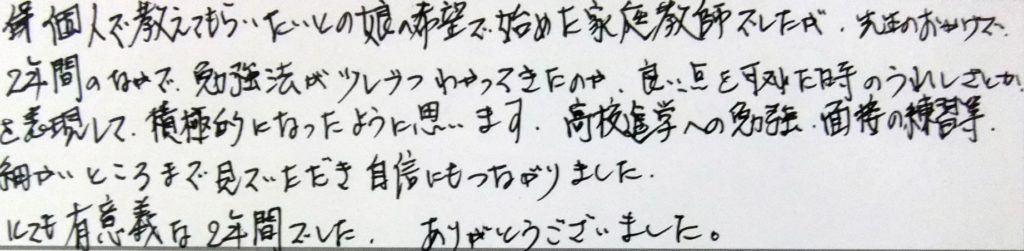 個人で教えてもらいたいとの娘の希望で始めた家庭教師でしたが、先生のおかげで、
2年間のなかで、勉強法が少しづつわかってきたのか、良い点を取れた時のうれしさとか
を表現して、積極的になったように思います。高校進学への勉強、面接の練習等、
細かいところまで見ていただき自信にもつながりました。
とても有意義な2年間でした。ありがとうございました。